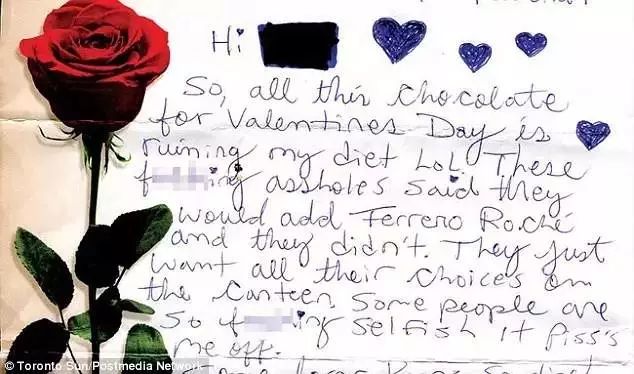 Hi
So, all this chocolate
for Valentines Day is
ruining my diet LoL. These
f ing assholes said they
would add Ferrero Roché
and they didn't. They just
want all their choices on
the canteen. Some people are
So f ing selfish it piss's
me off.
© Toronto Sun/Postmedia Network